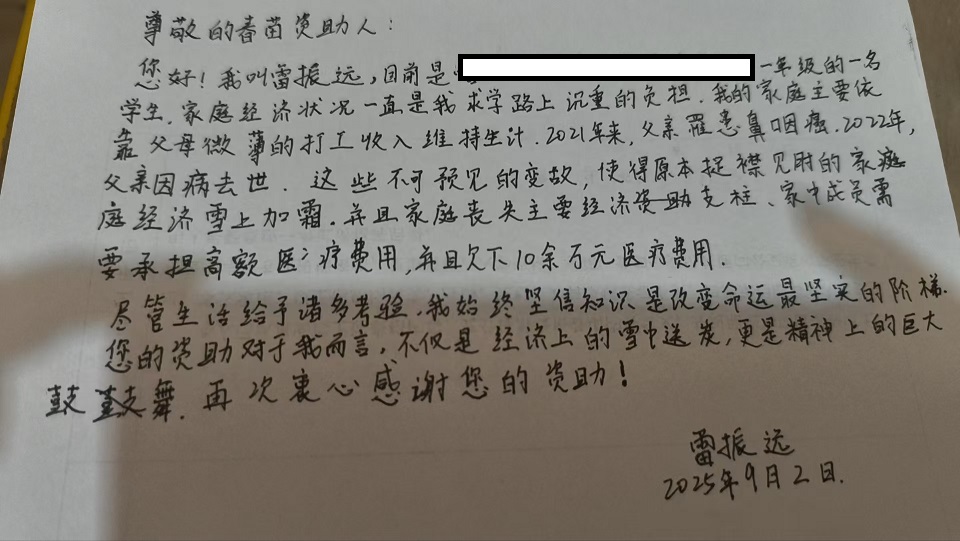 尊敬的春苗资助人：
您好！我叫雷振远，目前是 一年级的一名
学生．家庭经济状况一直是我求学路上沉重的负担．我的家庭主要依
靠父母微薄的打工收入维持生计．2021年来，父亲罹患鼻咽癌．2022年，
父亲因病去世．这些不可预见的变故，使得原本捉襟见肘的家庭
庭经济雪上加霜．并且家庭丧失主要经济资助支柱、家中成员需
要承担高额医疗费用，并且欠下10余万元医疗费用．
尽管生活给予诸多考验，我始终坚信知识是改变命运最坚实的阶梯．
您的资助对于我而言，不仅是经济上的雪中送炭，更是精神上的巨大
鼓舞．再次衷心感谢您的资助！
雷振远
2025年9月2日．